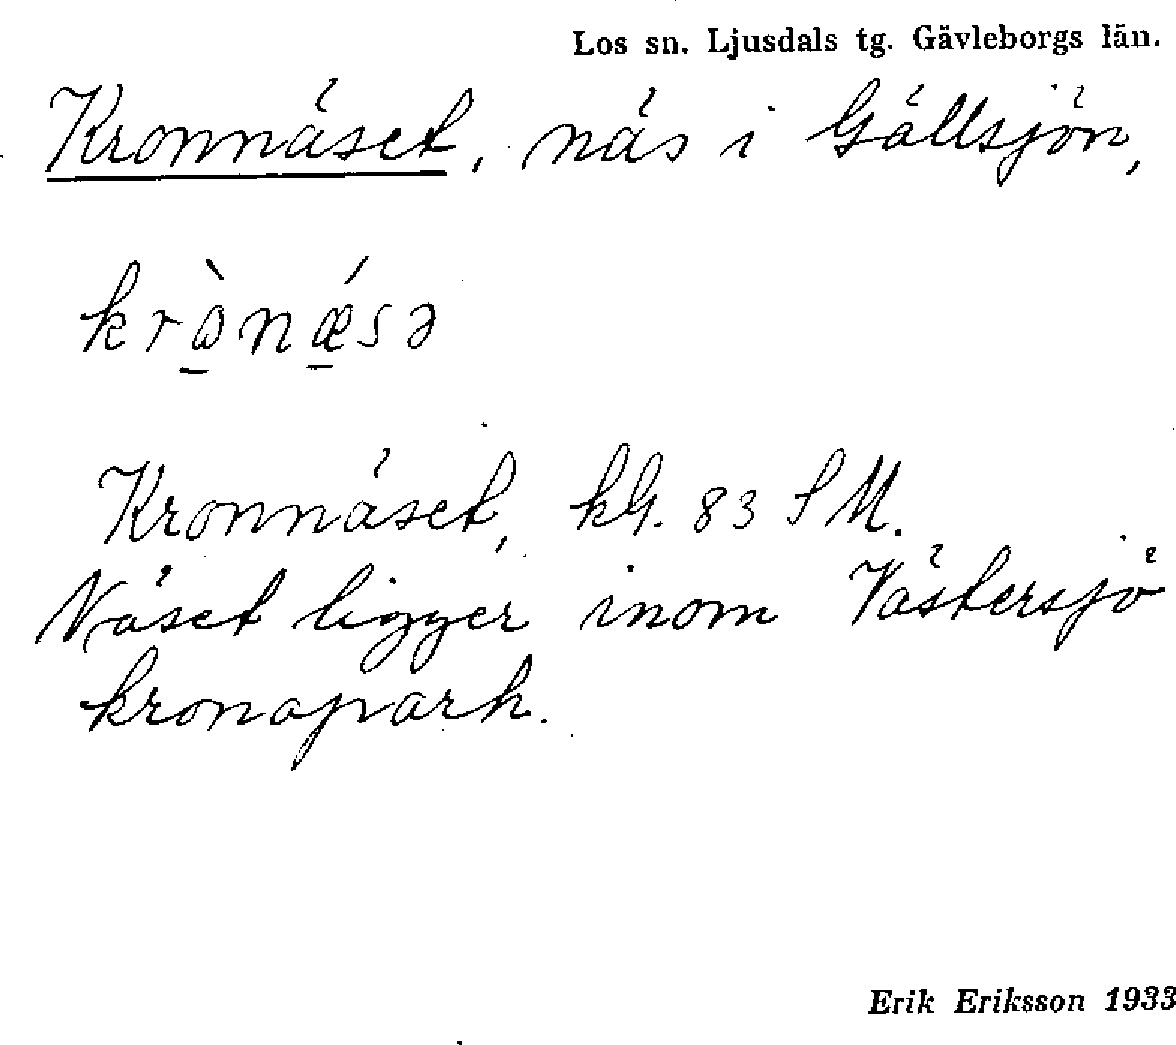 Los sn. Ljusdals tg. Gävleborgs län.
Kronnäset, näs i Gällsjön,
krὼnǽsə
Kronnäset, kG. 83 SM.
Näset ligger inom Västersjö
kronapark.
Erik Eriksson 1933